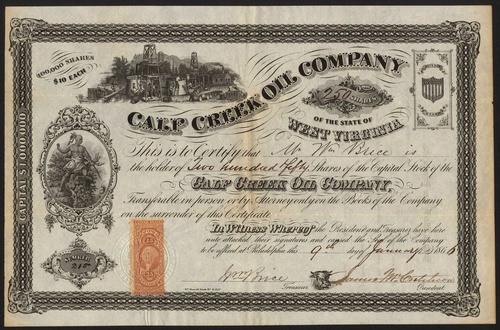 100,000 SHARES
$10 EACH
CALP CREEK OIL COMPANY
250
SHARES
OF THE STATE OF
WEST VIRGINIA
CAPITAL $1,000,000
This is to Certify that Mr Wm Brice is
the holder of Two hundred fifty Shares of the Capital Stock of the
CALP CREEK OIL COMPANY,
Transferable in person or by Attorney only on the Books of the Company
on the surrender of this Certificate.
In Witness Whereof the President and Treasurer have here
unto attached their signatures and caused the Seal of the Company
to be affixed at Philadelphia this 9th day of January 1866
NUMBER
Wm Brice
Treasurer
President